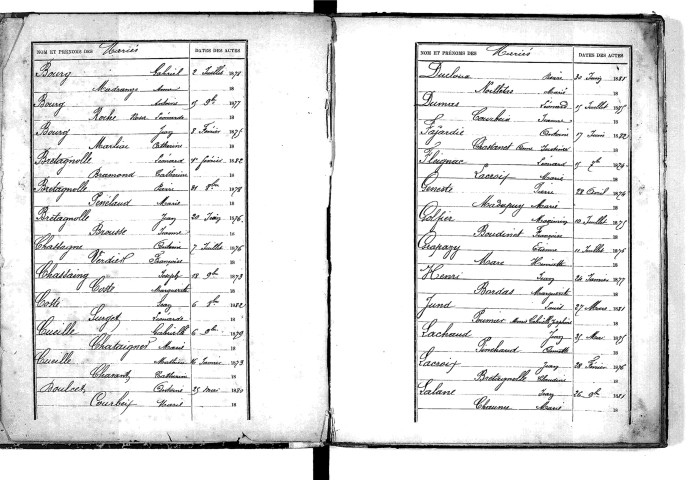 NOM ET PRÉNOMS DES Mariés DATES DES ACTES
Bourg Gabriel 2 Juillet 1878
Madrange 18
Bourg Antoine 15 9bre 1877
Roche Rose Léonarde 18
Bourg Jean 8 Février 1875
Marliac Catherine 18
Bretagnolle Léonard 4 février 1882
Bramond Catherine 18
Bretagnolle Pierre 31 8bre 1878
Penelaud Marie 18
Bretagnolle Jean 20 Juin 1876
Brousse Jeanne 18
Chassagne Antoine 7 Juillet 1876
Verdier Françoise 18
Chassaing Joseph 18 9bre 1873
Coste Marguerite 18
Coste Jean 6 8bre 1882
Surget Léonarde 18
Cueille Gabrielle 6 9bre 1879
Chataigner Marie 18
Cueille Mathieu 16 Janvier 1873
Catherine 18
Antoine 25 Mai 1880
Courbeix Marie 18
NOM ET PRÉNOMS DES Mariés DATES DES ACTES
Ducloux Pierre 30 Juin 1881
Marie 18
Dumas Léonard 15 Juillet 1875
Courbeix Jeanne 18
Fajardie Antoine 17 Juin 1882
Chastanet 18
Fleignac Léonard 15 7bre 1874
Lacroix Marie 18
Geneste Pierre 28 Avril 1874
Madepuy Marie 18
Golfier 10 Juillet 1875
Boudinet Françoise 18
Goupazy Etienne 11 Juillet 1876
Mars Henriette 18
Henri Jean 24 Janvier 1877
Bordas Marguerite 18
Jund Louis 27 Mars 1881
Poumier Marie 18
Lachaud Jean 25 Mai 1875
Ponchaud 18
Lacroix Jean 28 Février 1876
Bretagnolle Claudine 18
Lalane Jean 26 9bre 1881
Marie 18